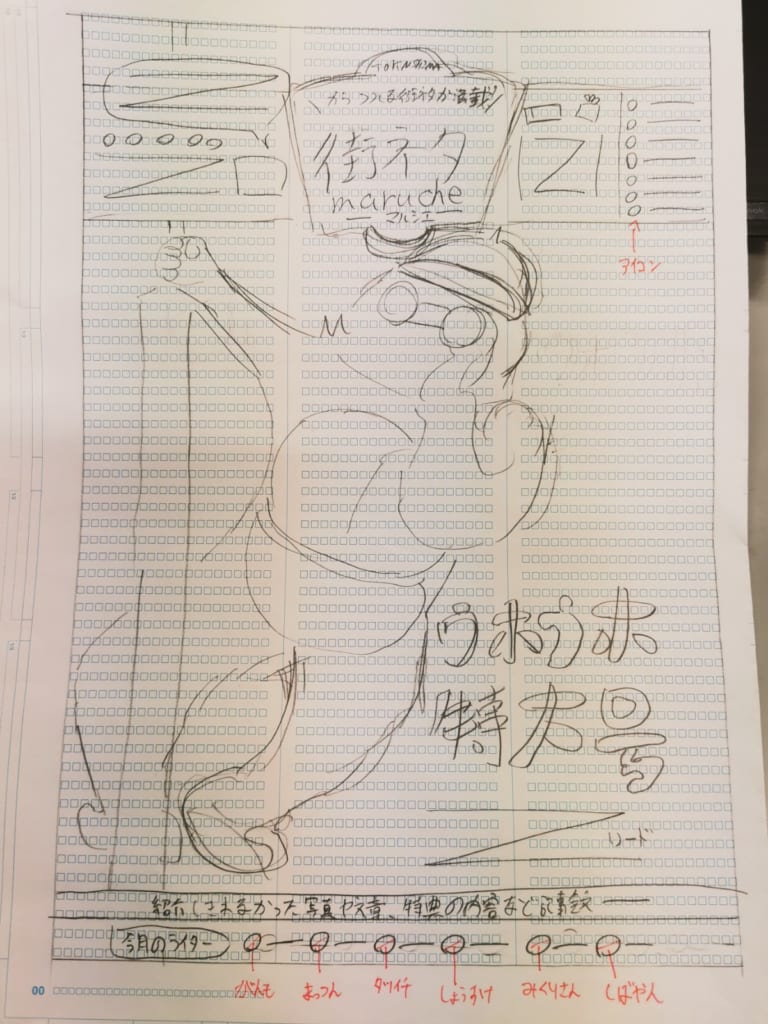 TOKUSHIMA
街ネタ
maruche
マルシェ
アイコン
M
ウホウホ
特大号
リード
紹介しきれなかった写真や文章、特典の内容など記事全文
今月のライター
がんも
まっつん
ダイチ
しょうすけ
みくりさん
しばやん
00